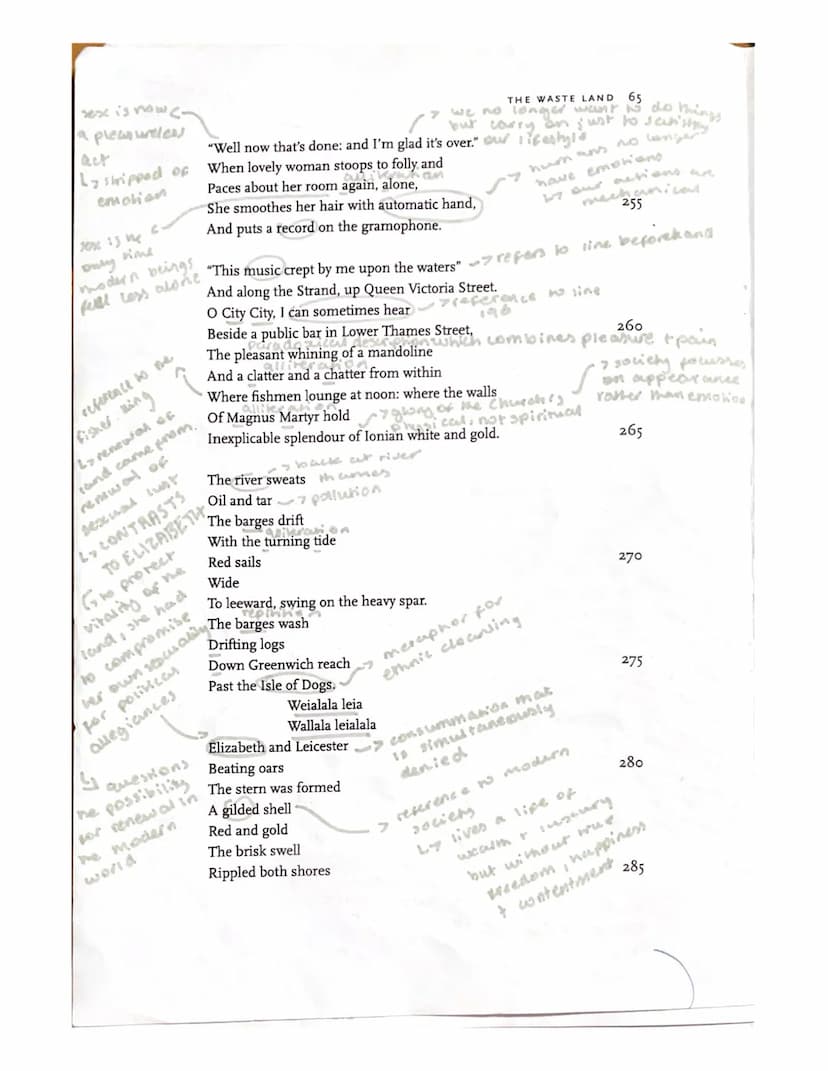 THE WASTE LAND 65
sex is now
a pleasureless
act
↳ stripped of
emotion
→ we no longer want to do things
but carry on just to satisfy
our lifestyle
"Well now that's done: and I'm glad it's over."
When lovely woman stoops to folly and
alliteration
Paces about her room again, alone,
→ humans no longer
have emotions
↳ our actions are
mechanical
She smoothes her hair with automatic hand, 255
And puts a record on the gramophone.
sex is the
only time
modern beings
feel less alone
"This music crept by me upon the waters"
→ refers to line beforehand
And along the Strand, up Queen Victoria Street.
O City City, I can sometimes hear
→ reference to line
196
Beside a public bar in Lower Thames Street, 260
paradoxical description which combines pleasure + pain
The pleasant whining of a mandoline
alliteration
And a clatter and a chatter from within
Where fishmen lounge at noon: where the walls
→ society focusses
on appearance
rather than emotion
alliteration
Of Magnus Martyr hold
→ glory of the Church is
physical, not spiritual
Inexplicable splendour of Ionian white and gold. 265
reference to the
fisher king
↳ renewal of
land came from
renewal of
sexual lust
↳ CONTRASTS
TO ELIZABETH
↳ to protect
vitality of the
land, she had
to compromise
her own sexuality
for political
allegiances
→ back at river
thames
The river sweats
Oil and tar
→ pollution
The barges drift
alliteration
With the turning tide
Red sails 270
Wide
To leeward, swing on the heavy spar.
The barges wash
Drifting logs
Down Greenwich reach 275
Past the Isle of Dogs.
→ metaphor for
ethnic cleansing
Weialala leia
Wallala leialala
Elizabeth and Leicester
→ consummation that
is simultaneously
denied
Beating oars 280
The stern was formed
A gilded shell
Red and gold
The brisk swell
Rippled both shores 285
↳ questions
the possibility
for renewal in
the modern
world
→ reference to modern
society
↳ lives a life of
wealth + luxury
but without true
freedom, happiness
+ contentment